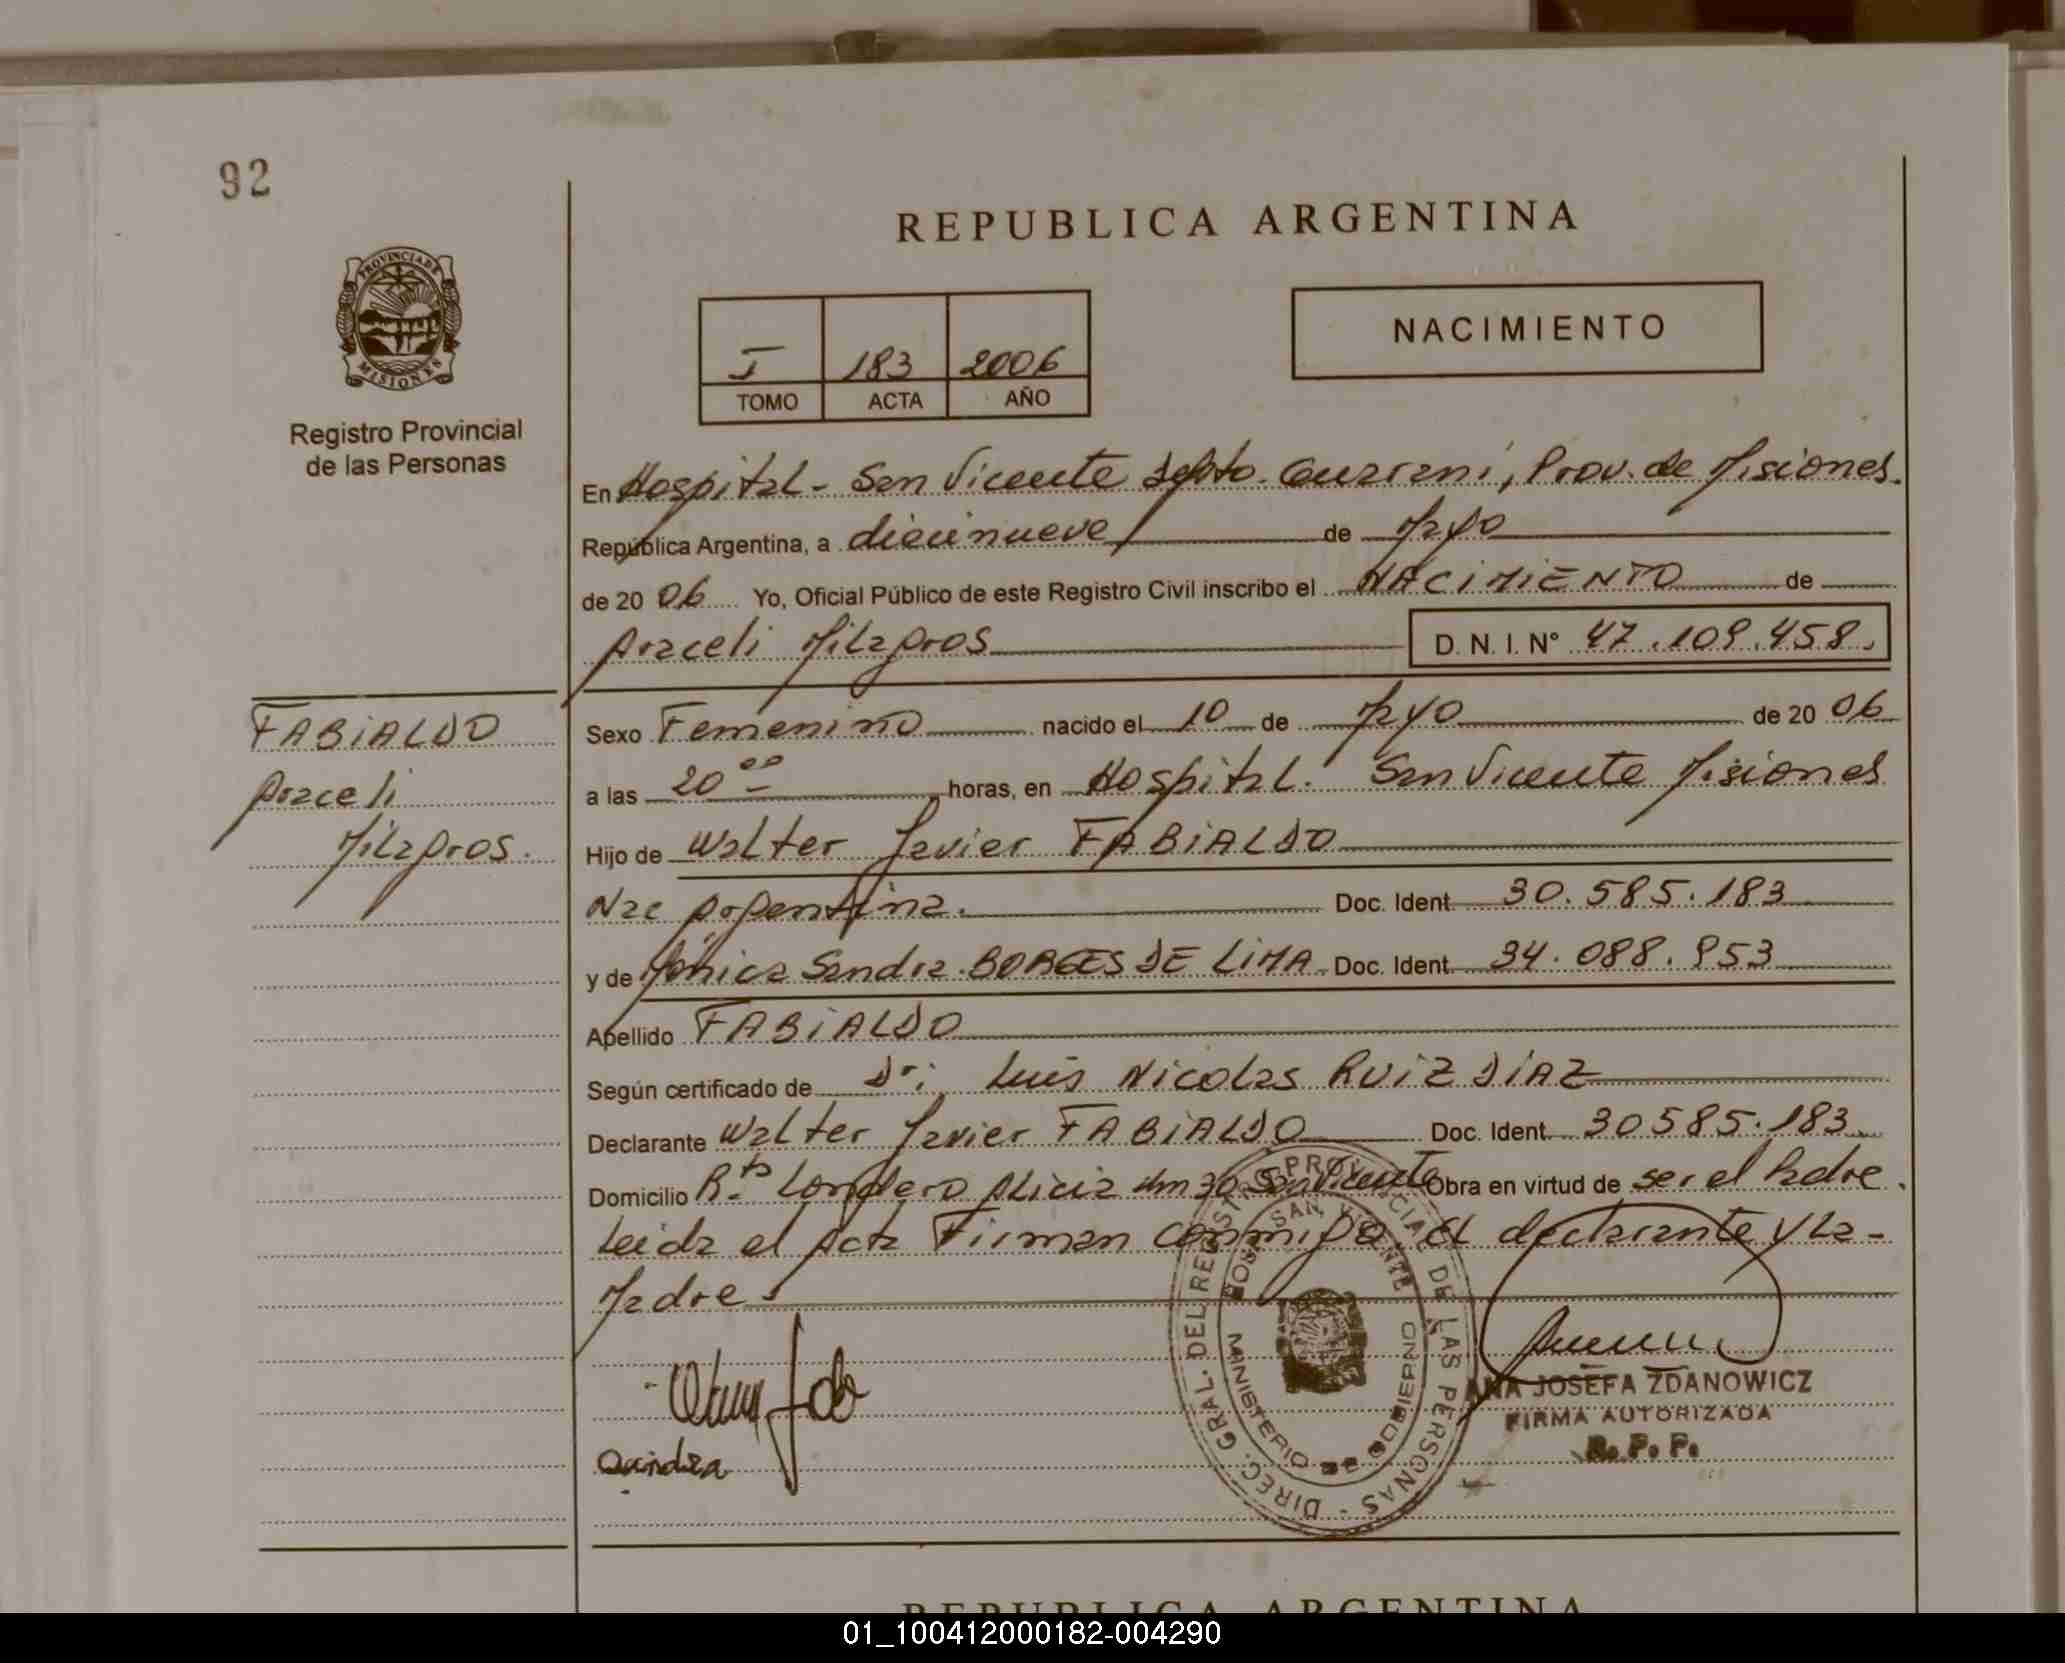 92
REPUBLICA ARGENTINA
PROVINCIA DE MISIONES
Registro Provincial
de las Personas
I 183 2006
TOMO ACTA AÑO
NACIMIENTO
En Hospital - San Vicente Dpto. Guarani, Prov. de Misiones.
República Argentina, a diecinueve de Mayo
de 20 06 Yo, Oficial Público de este Registro Civil inscribo el NACIMIENTO de
Araceli Milagros D. N. I. N° 47.109.458.
FABIALDO
Araceli
Milagros.
Sexo Femenino nacido el 10 de Mayo de 20 06
a las 20 00 horas, en Hospital. San Vicente Misiones
Hijo de Walter Javier FABIALDO
Nac Argentina. Doc. Ident. 30.585.183
y de Mónica Sandra BORGES DE LIMA Doc. Ident. 34.088.953
Apellido FABIALDO
Según certificado de Dr: Luis Nicolas RUIZ DIAZ
Declarante Walter Javier FABIALDO Doc. Ident. 30585.183
Domicilio Rto Londero Alicia km 30 San Vicente Obra en virtud de ser el Padre.
Leida el Acta Firman conmigo. El declarante y La-
Madre
DIREC. GRAL. DEL REGISTRO PROVINCIAL DE LAS PERSONAS
HOSP. SAN VICENTE
MINISTERIO DE GOBIERNO
ANA JOSEFA ZDANOWICZ
FIRMA AUTORIZADA
R. P. P.
REPUBLICA ARGENTINA
01_100412000182-004290